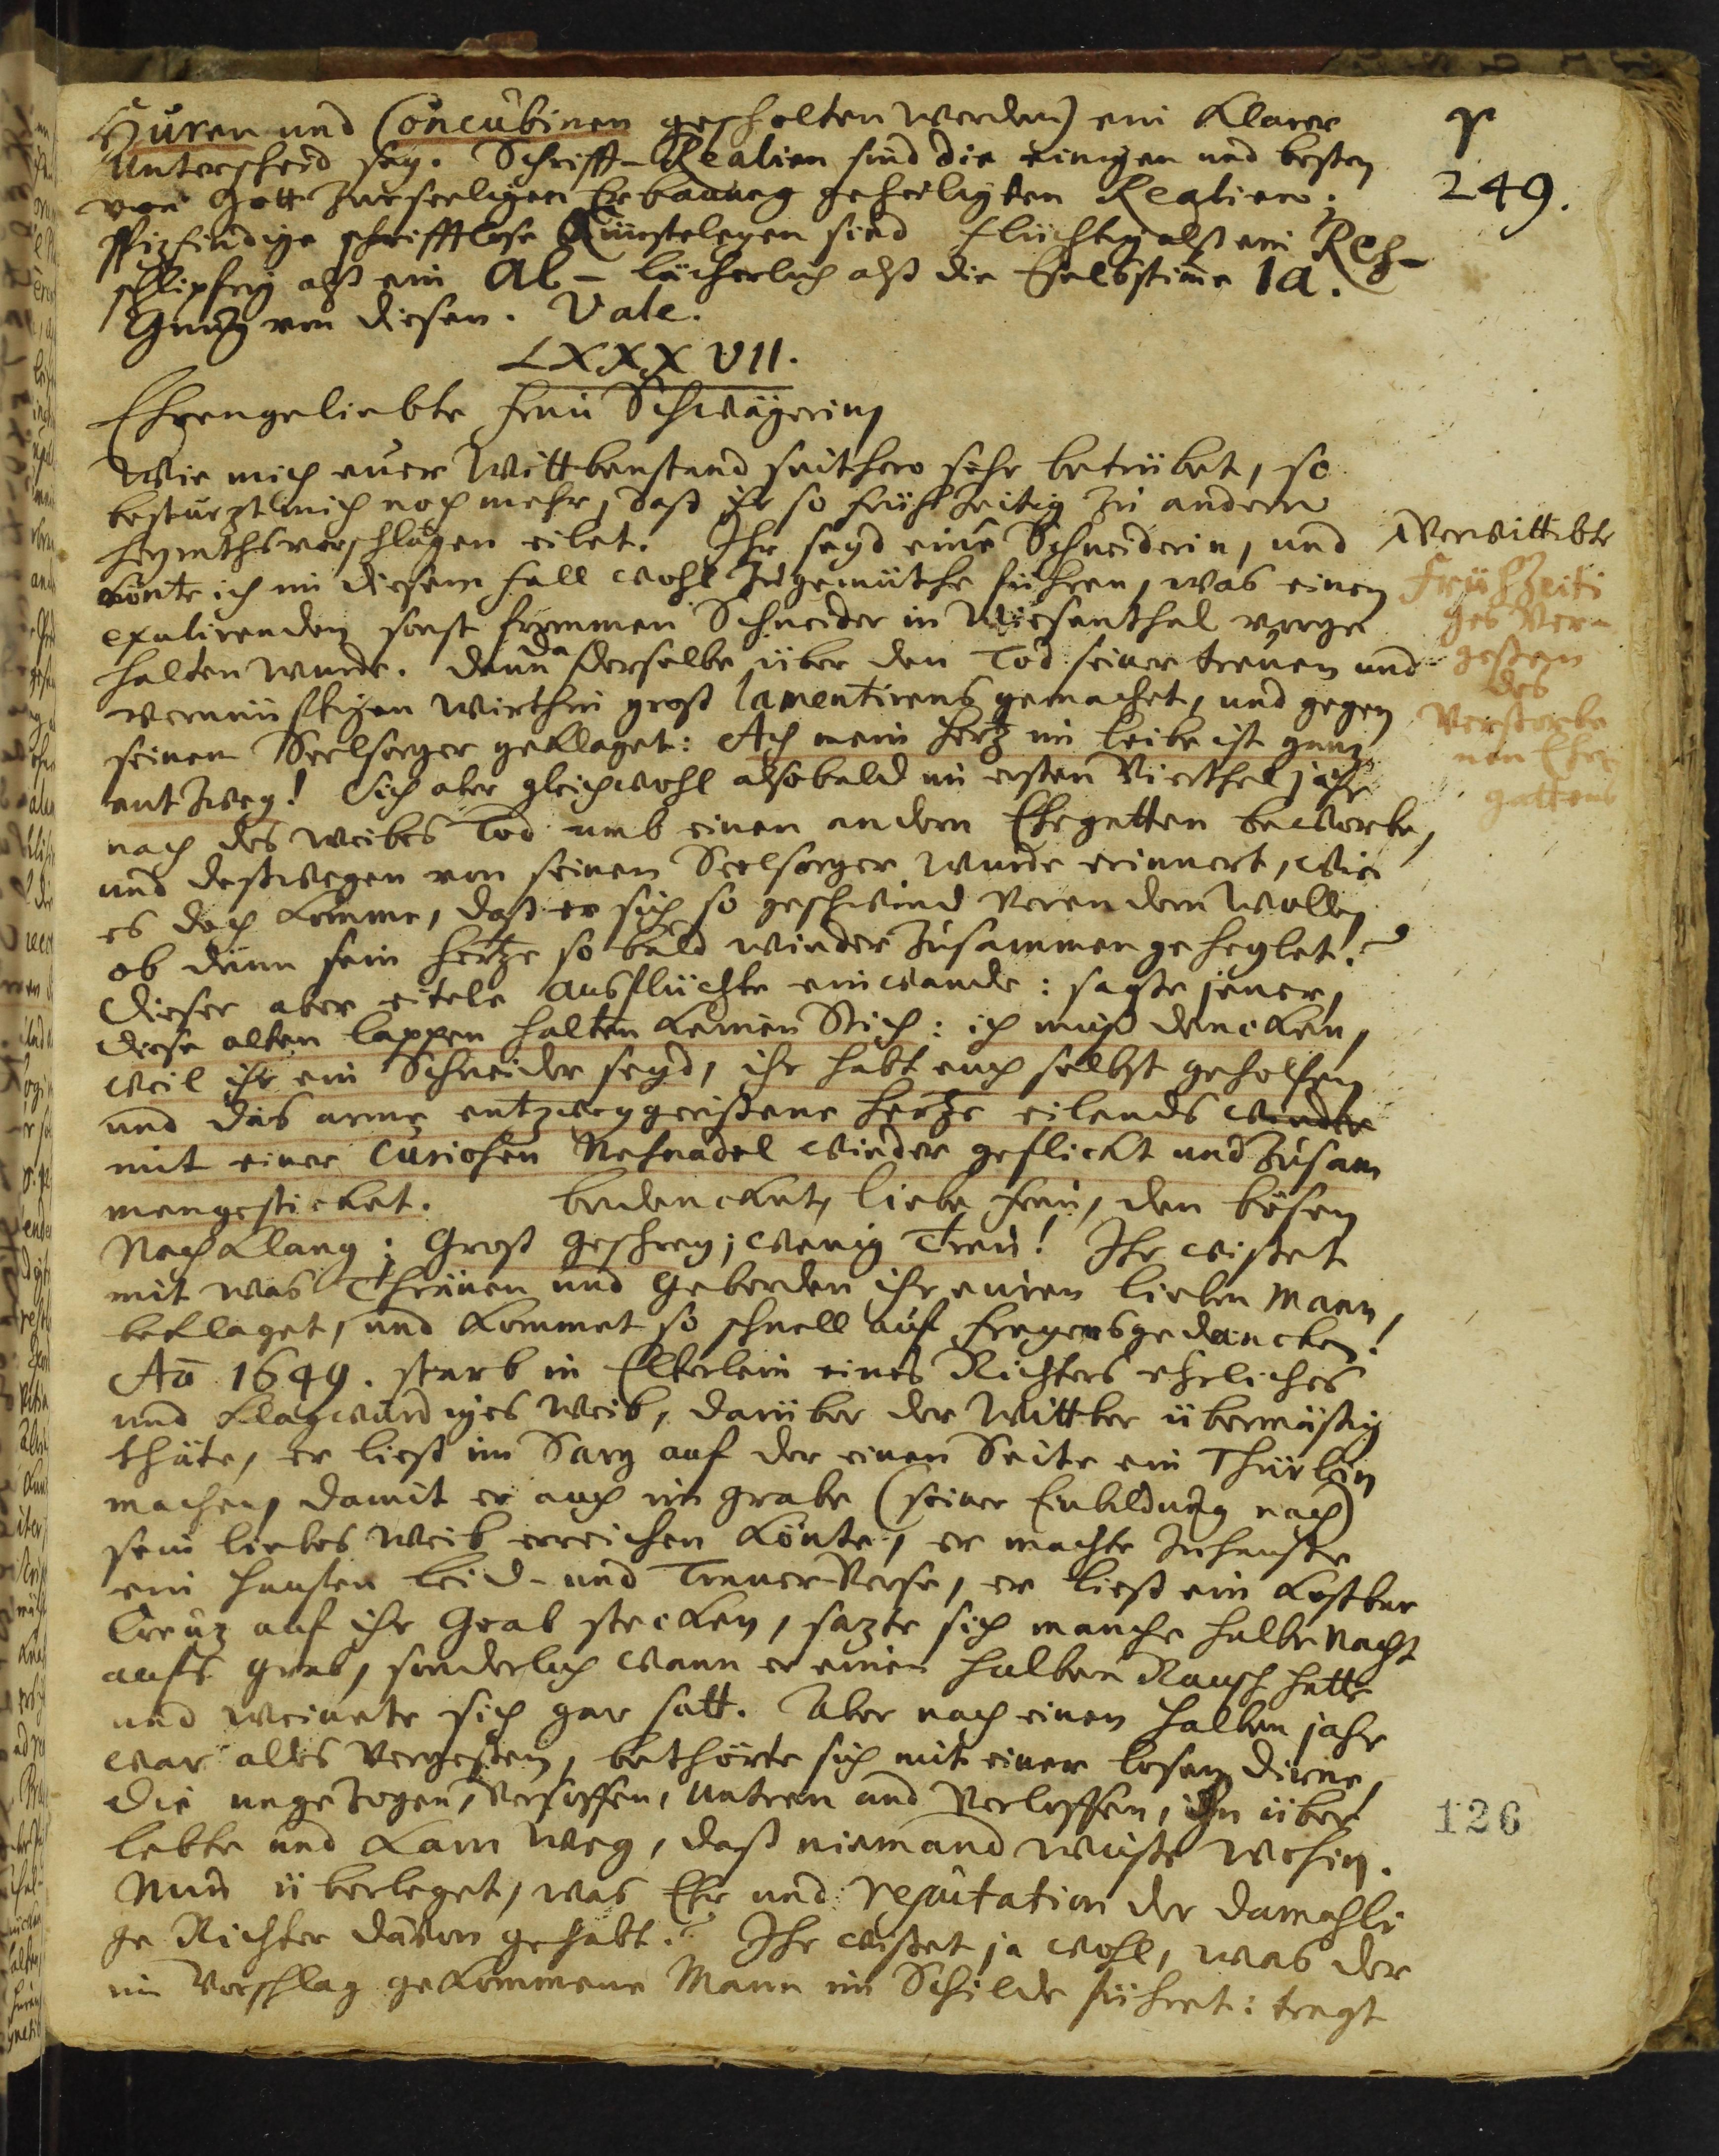 Huren und Concubinen gescholten werden) ein klarer
Unterscheid sey. Schrifft-Realien sind die einigen und besten
von Gott zur seeligen Erbauung geheiligten Realien.
Spizfindige schrifftlose Künsteleyen sind flüchtig alß ein Reh-
schlipfrig alß ein Al- lächerlich alß die Eselsstim̄e Ia.
Gnug von diesen. Vale.
LXXXVII.
Ehrengeliebte Frau Schwägerin
Wie mich euer Wittbenstand seithero sehr betrübet, so
bestürzt mich noch mehr, daß ihr so frühzeitig zu andern
Heyrathsvorschlägen eilet. Ihr seyd eine Schneiderin, und
könte ich in diesem fall wohl zu gemüthe führen, was einen
exulirenden sonst frommen Schneider in Wiesenthal vorge
halten wurde. Dann da derselbe über den Tod seiner treuen und
vernünftigen Wirthin groß lamentirens gemachet, und gegen
seinen Seelsorger geklaget: Ach mein Hertz im leibe ist ganz
entzwey! Sich aber gleichwohl alsobald im ersten Vierthel jahr
nach des Weibes Tod umb einen andern Ehegatten bewarbe,
und deßwegen von seinen Seelsorger wurde erinnert, wie
es doch komme, daß er sich so geschwind verendern wolle,
ob dann sein Hertze so bald wieder zusammen geheylet?
Dieser aber eitele Ausflüchte einwande: sagte jener,
diese alten lappen halten keinen Stich: ich muß dencken,
weil ihr ein Schneider seyd, ihr habt euch selbst geholfen
und das arme entzweygerißene Hertze eilends wieder
mit einer curiosen Nehnadel wieder geflickt und zusam
mengesticket. bedencket, liebe Frau, den bösen
Nachklang: Groß geschrey; wenig Treu! Ihr wißet
mit was Thränen und Geberden ihr euren lieben Mann,
beklaget, und kommet so schnell auf Freyensgedancken!
Aō 1649. starb in Elterlein eines Richters ehrliches
und klagwürdiges Weib, darüber der Wittber übermäßig
thäte, er ließ im Sarg auf der einen Seite ein Thürlein
machen, damit er auch im grabe (seiner Einbildung nach)
sein liebes Weib erreichen könte, er machte zu hause
ein hauffen leid- und Trauer-Verse, er ließ ein kostbar
Creuz auf ihr Grab stecken, sazte sich manche halbe Nacht
aufs grab, sonderlich wann er einen halben Rausch hatte
und weinete sich gar satt. Aber nach einen halben jahr
war alles vergeßen, bethörte sich mit einer losen Dirne,
die ungezogen, versoffen, untreu und verloffen, ihn über
lebte und kam weg, daß niemand wuste wohin.
Nun überleget, was Ehr und reputation der damahli
ge Richter davon gehabt? Ihr wißet ja wohl, was der
im Vorschlag gekommene Mann im Schilde führet: tragt
p
249.
Verwittibte
Frühzeiti
ges Ver-
geßen
des
Verstorbe
nen Ehe
gattens
126